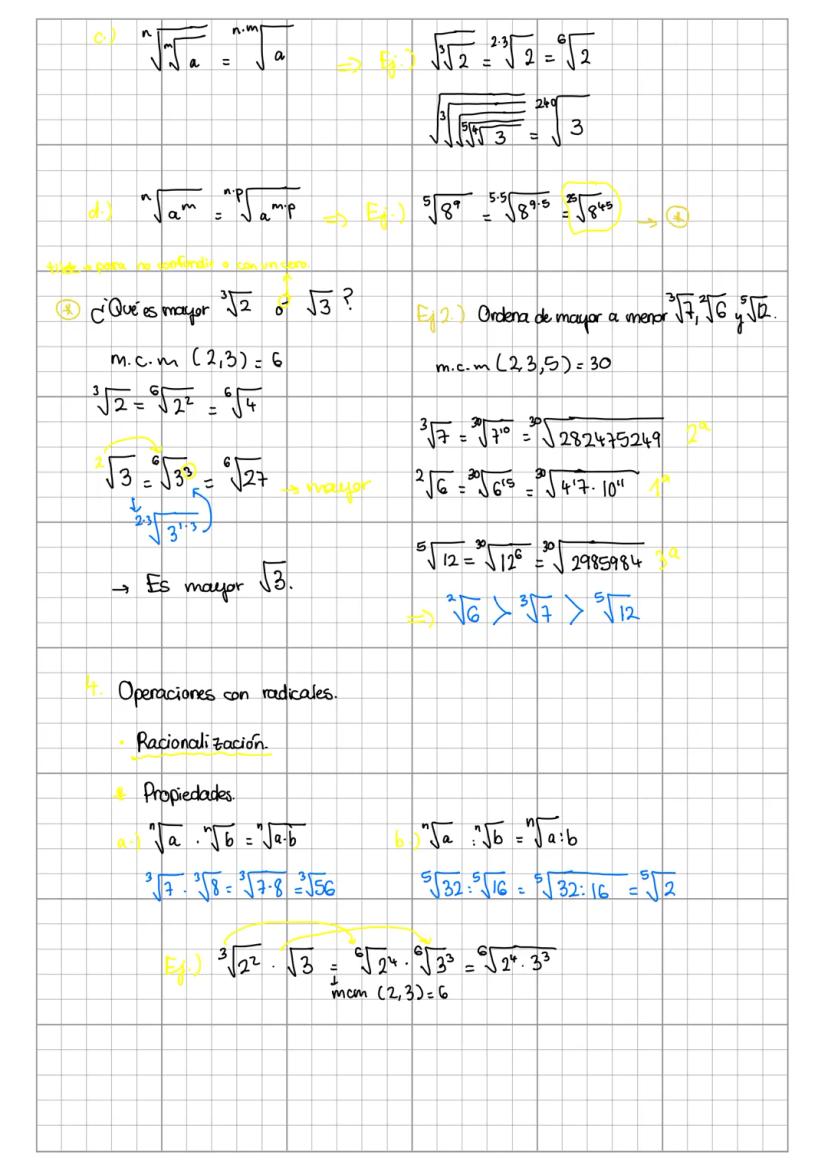 c.) ⁿ√(ᵐ√a) = ⁿ·ᵐ√a ⇒ Ej.) √(³√2) = ²·³√2 = ⁶√2
√(³√(√(√(⁵√(⁴√3))))) = ²⁴⁰√3
d.) ⁿ√(aᵐ) = ⁿ·ᵖ√(aᵐ·ᵖ) ⇒ Ej.) ⁵√(8⁹) = ⁵·⁵√(8⁹·⁵) = ²⁵√(8⁴⁵) → *
para no confundir o con un cero.
* ¿Qué es mayor ³√2 ó √3?
m.c.m (2,3) = 6
³√2 = ⁶√(2²) = ⁶√4
²√3 = ⁶√(3³) = ⁶√27 → mayor
²·³√(3¹·³)
→ Es mayor √3.
Ej 2.) Ordena de mayor a menor ³√7, ²√6 y ⁵√12.
m.c.m (2,3,5) = 30
³√7 = ³⁰√(7¹⁰) = ³⁰√282475249 2ª
²√6 = ³⁰√(6¹⁵) = ³⁰√(4'7 · 10¹¹) 1ª
⁵√12 = ³⁰√(12⁶) = ³⁰√2985984 3ª
⇒ ²√6 > ³√7 > ⁵√12
4. Operaciones con radicales.
· Racionalización.
* Propiedades.
a.) ⁿ√a · ⁿ√b = ⁿ√(a·b)
³√7 · ³√8 = ³√(7·8) = ³√56
b.) ⁿ√a : ⁿ√b = ⁿ√(a:b)
⁵√32 : ⁵√16 = ⁵√(32:16) = ⁵√2
Ej.) ³√(2²) · √3 = ⁶√(2⁴) · ⁶√(3³) = ⁶√(2⁴ · 3³)
mcm (2,3) = 6